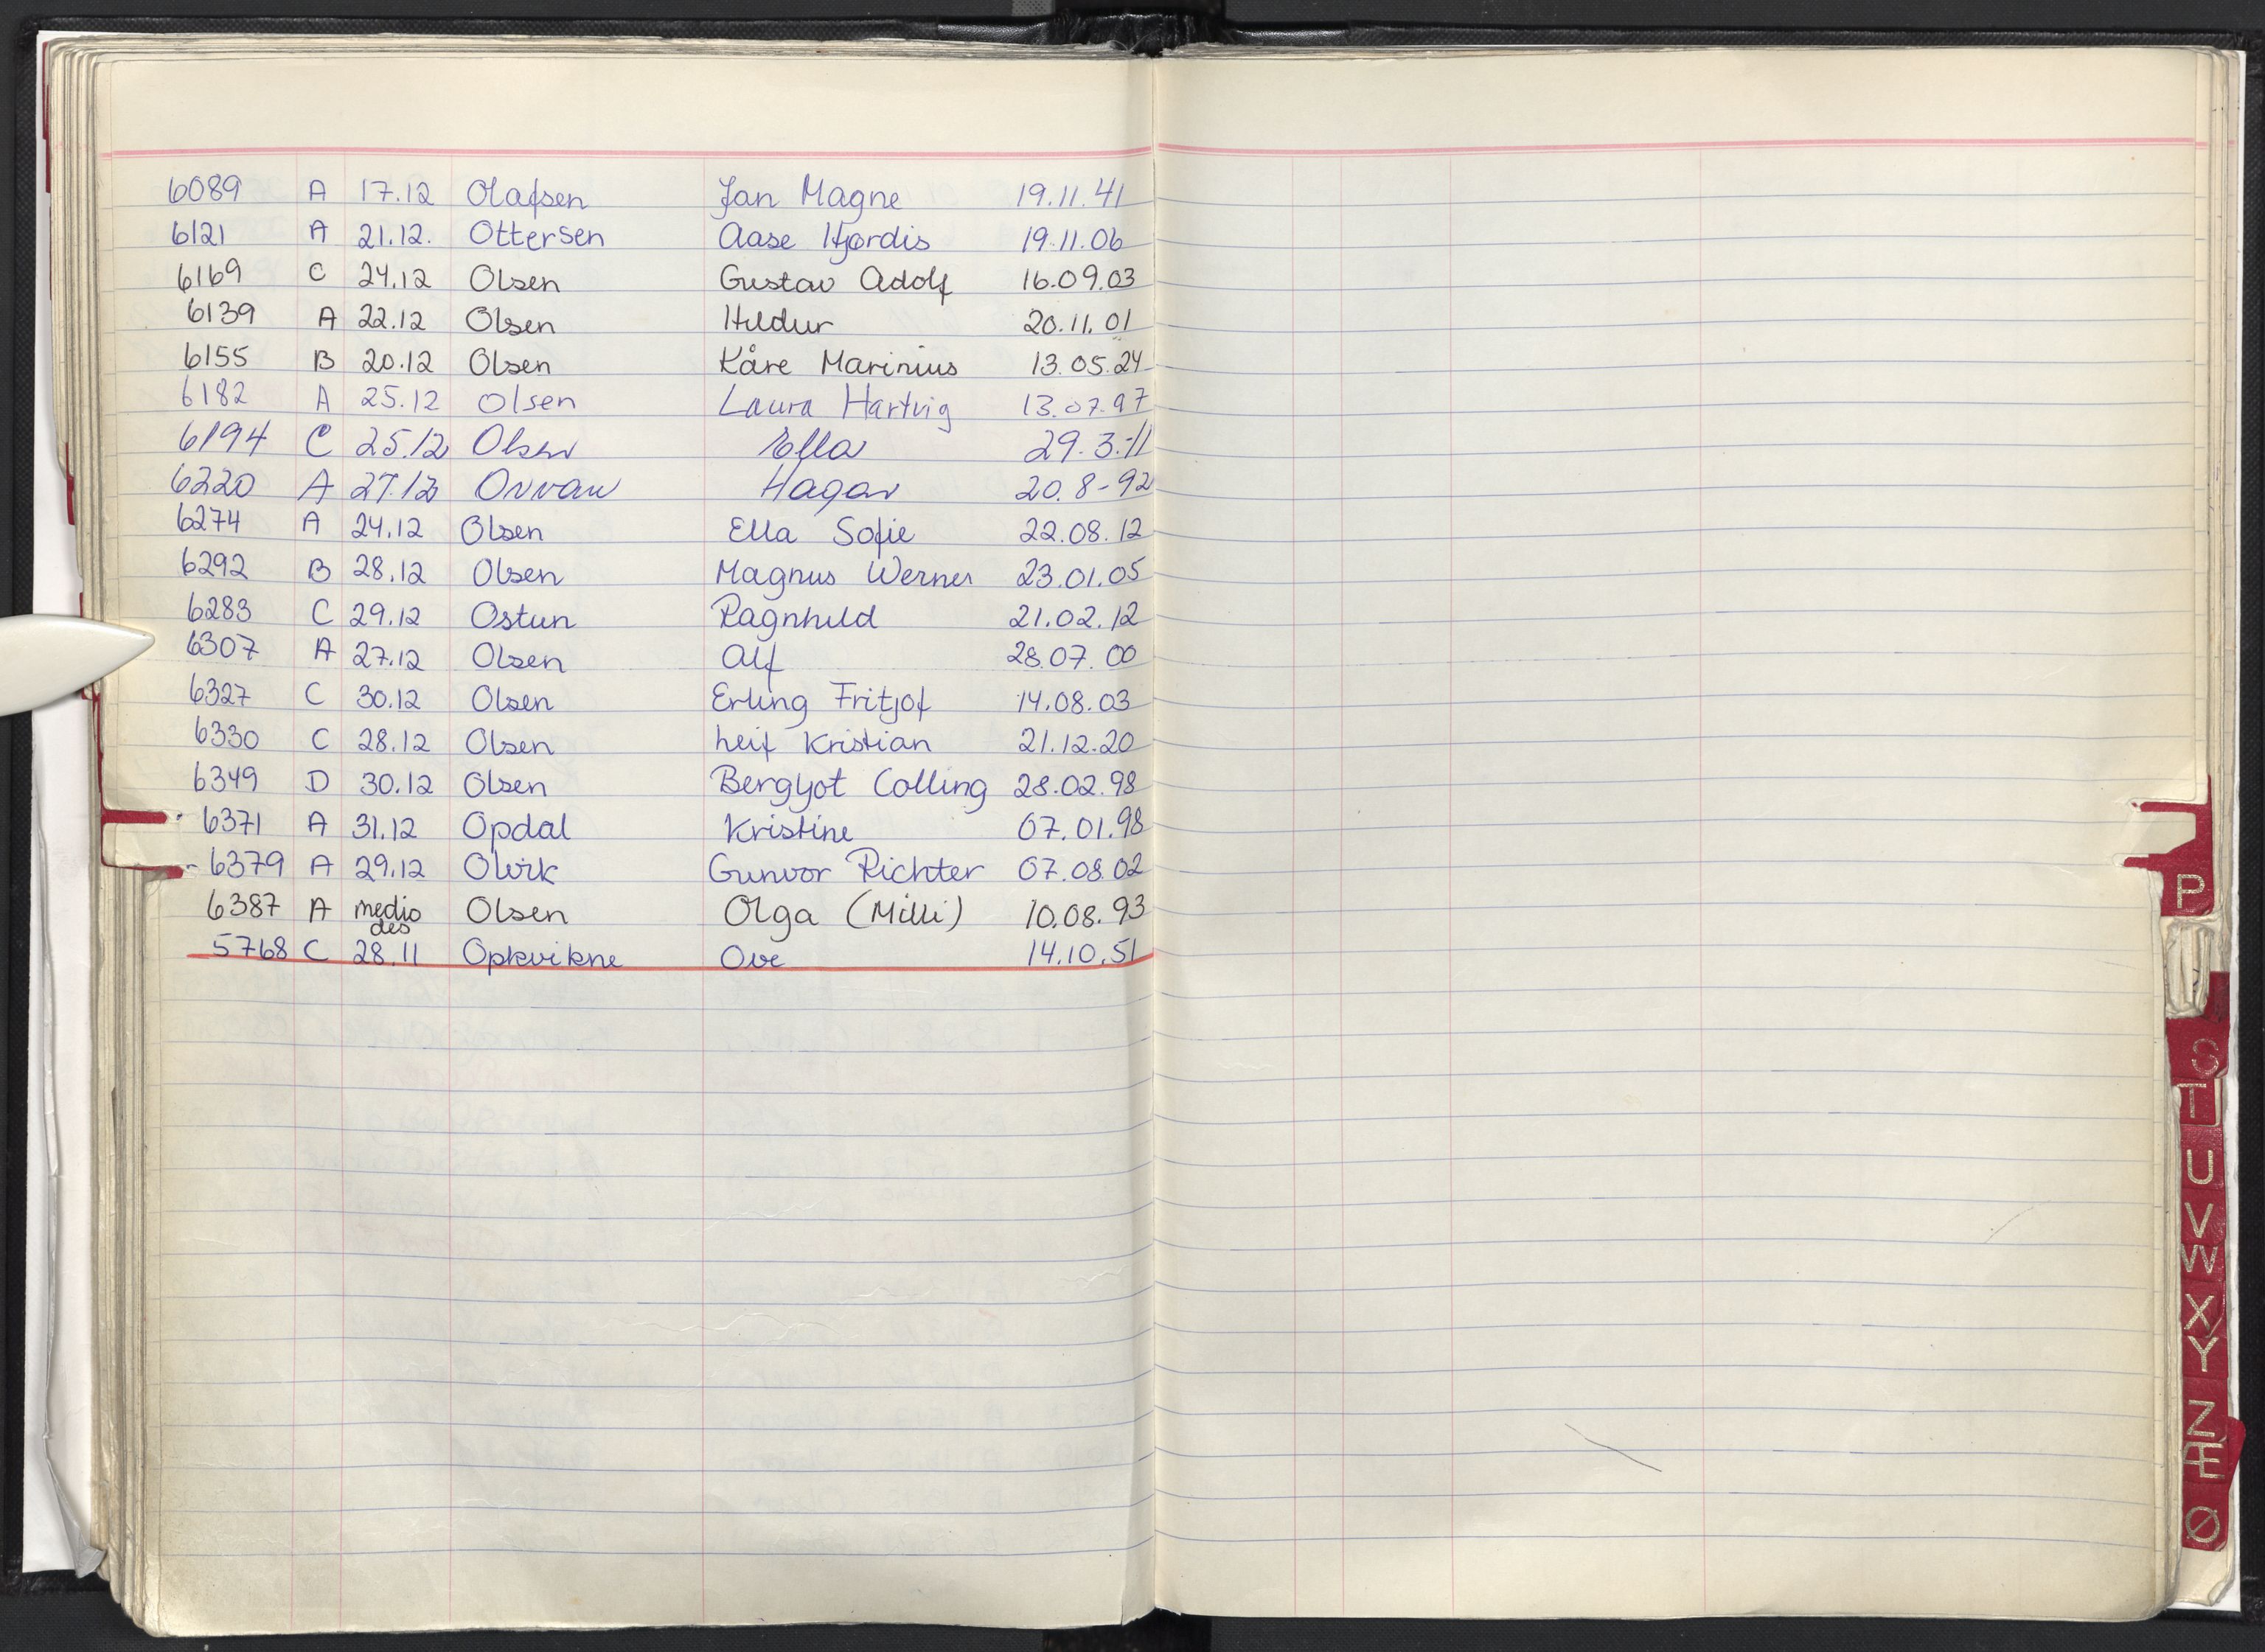 6089 A 17.12 Olafsen Jan Magne 19.11.41
6121 A 21.12. Ottersen Aase Hjørdis 19.11.06
6169 C 24.12 Olsen Gustav Adolf 16.09.03
6139 A 22.12 Olsen Hildur 20.11.01
6155 B 20.12 Olsen Kåre Marinius 13.05.24
6182 A 25.12 Olsen Laura Hartvig 13.07.97
6194 C 25.12 Olsen Ella 29.3.-11
6220 A 27.12 Hagar 20.8-92
6274 A 24.12 Olsen Ella Sofie 22.08.12
6292 B 28.12 Olsen Magnus Werner 23.01.05
6283 C 29.12 Ostun Ragnhild 21.02.12
6307 A 27.12 Olsen Alf 28.07.00
6327 C 30.12 Olsen Erling Fritjof 14.08.03
6330 C 28.12 Olsen Leif Kristian 21.12.20
6349 D 30.12 Olsen Bergljot Colling 28.02.98
6371 A 31.12 Opdal Kristine 07.01.98
6379 A 29.12 Olvik Gunvor Richter 07.08.02
6387 A medio des Olsen Olga (Milli) 10.08.93
5768 C 28.11 Opkvikne Ove 14.10.51
P
S
T
U
V
W
X
Y
Z
Æ
Ø